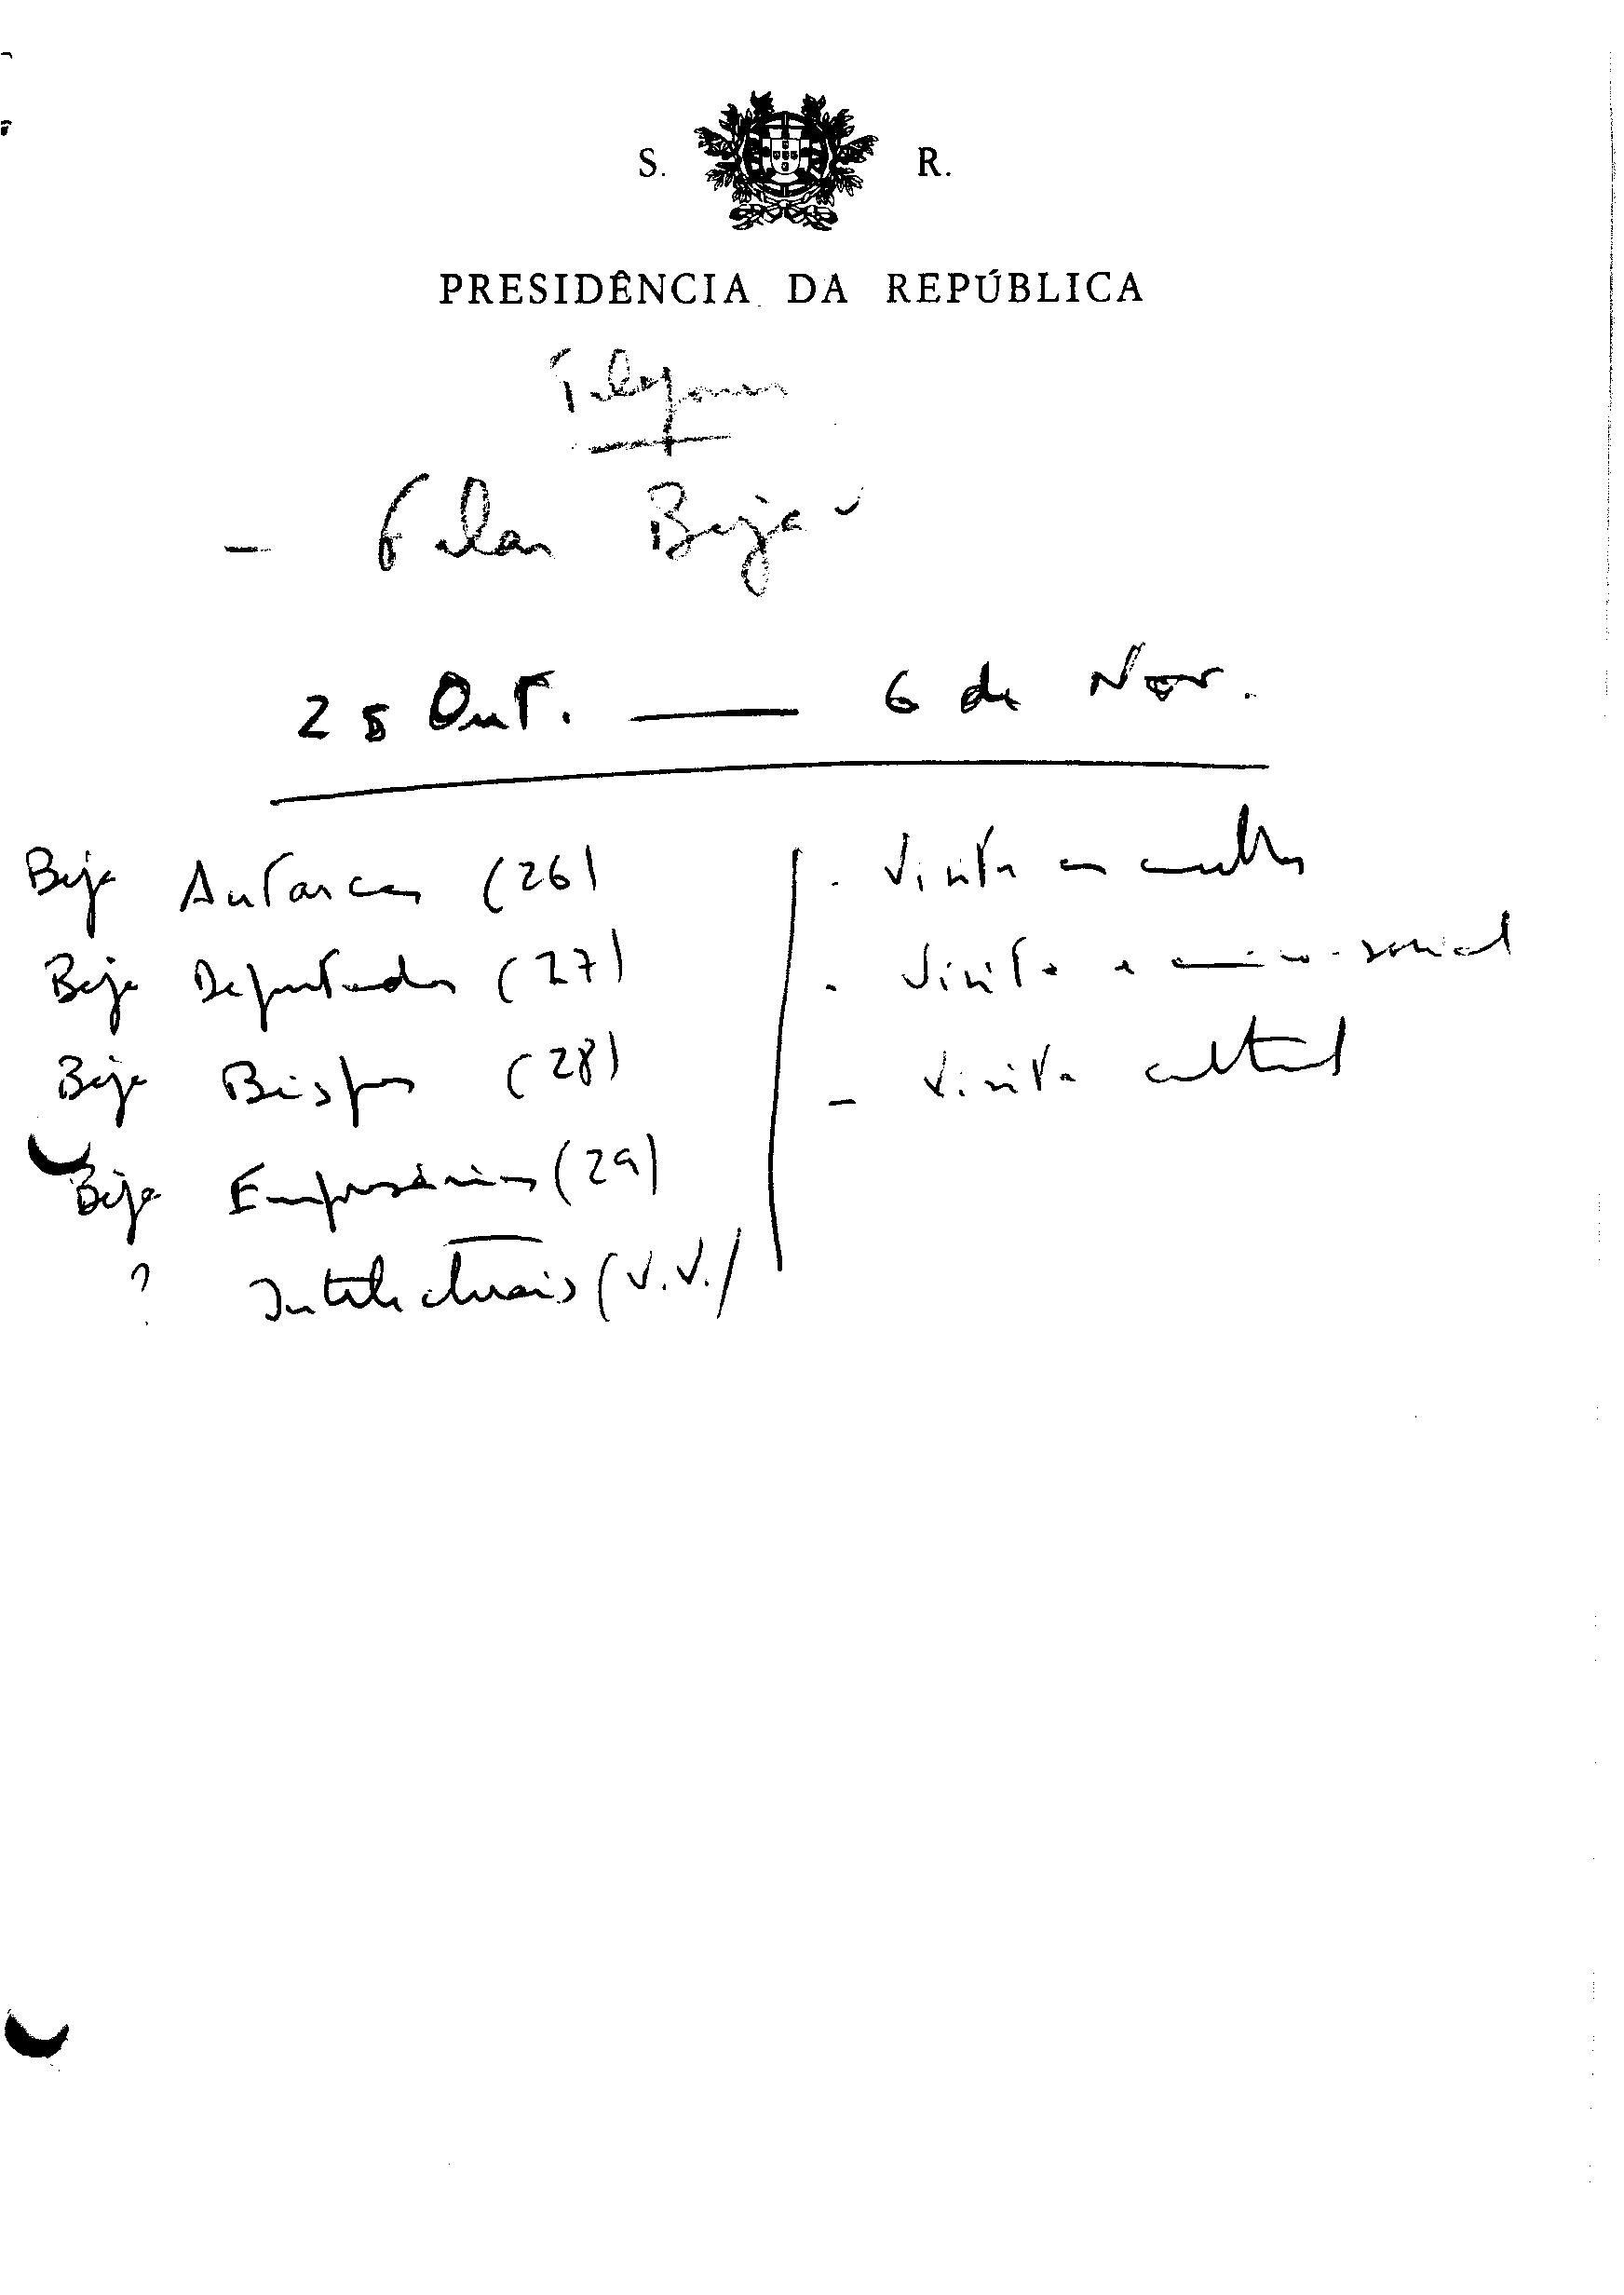 S. R.
PRESIDÊNCIA DA REPÚBLICA
Telefonar
- Falar Beja
25 Out. — 6 de Nov.
Beja Autarcas (26)
Beja Deputados (27)
Beja Bispos (28)
Beja Empresários (29)
? Intelectuais (V.V.)
- Visita
- Visita económico-social
- Visita cultural